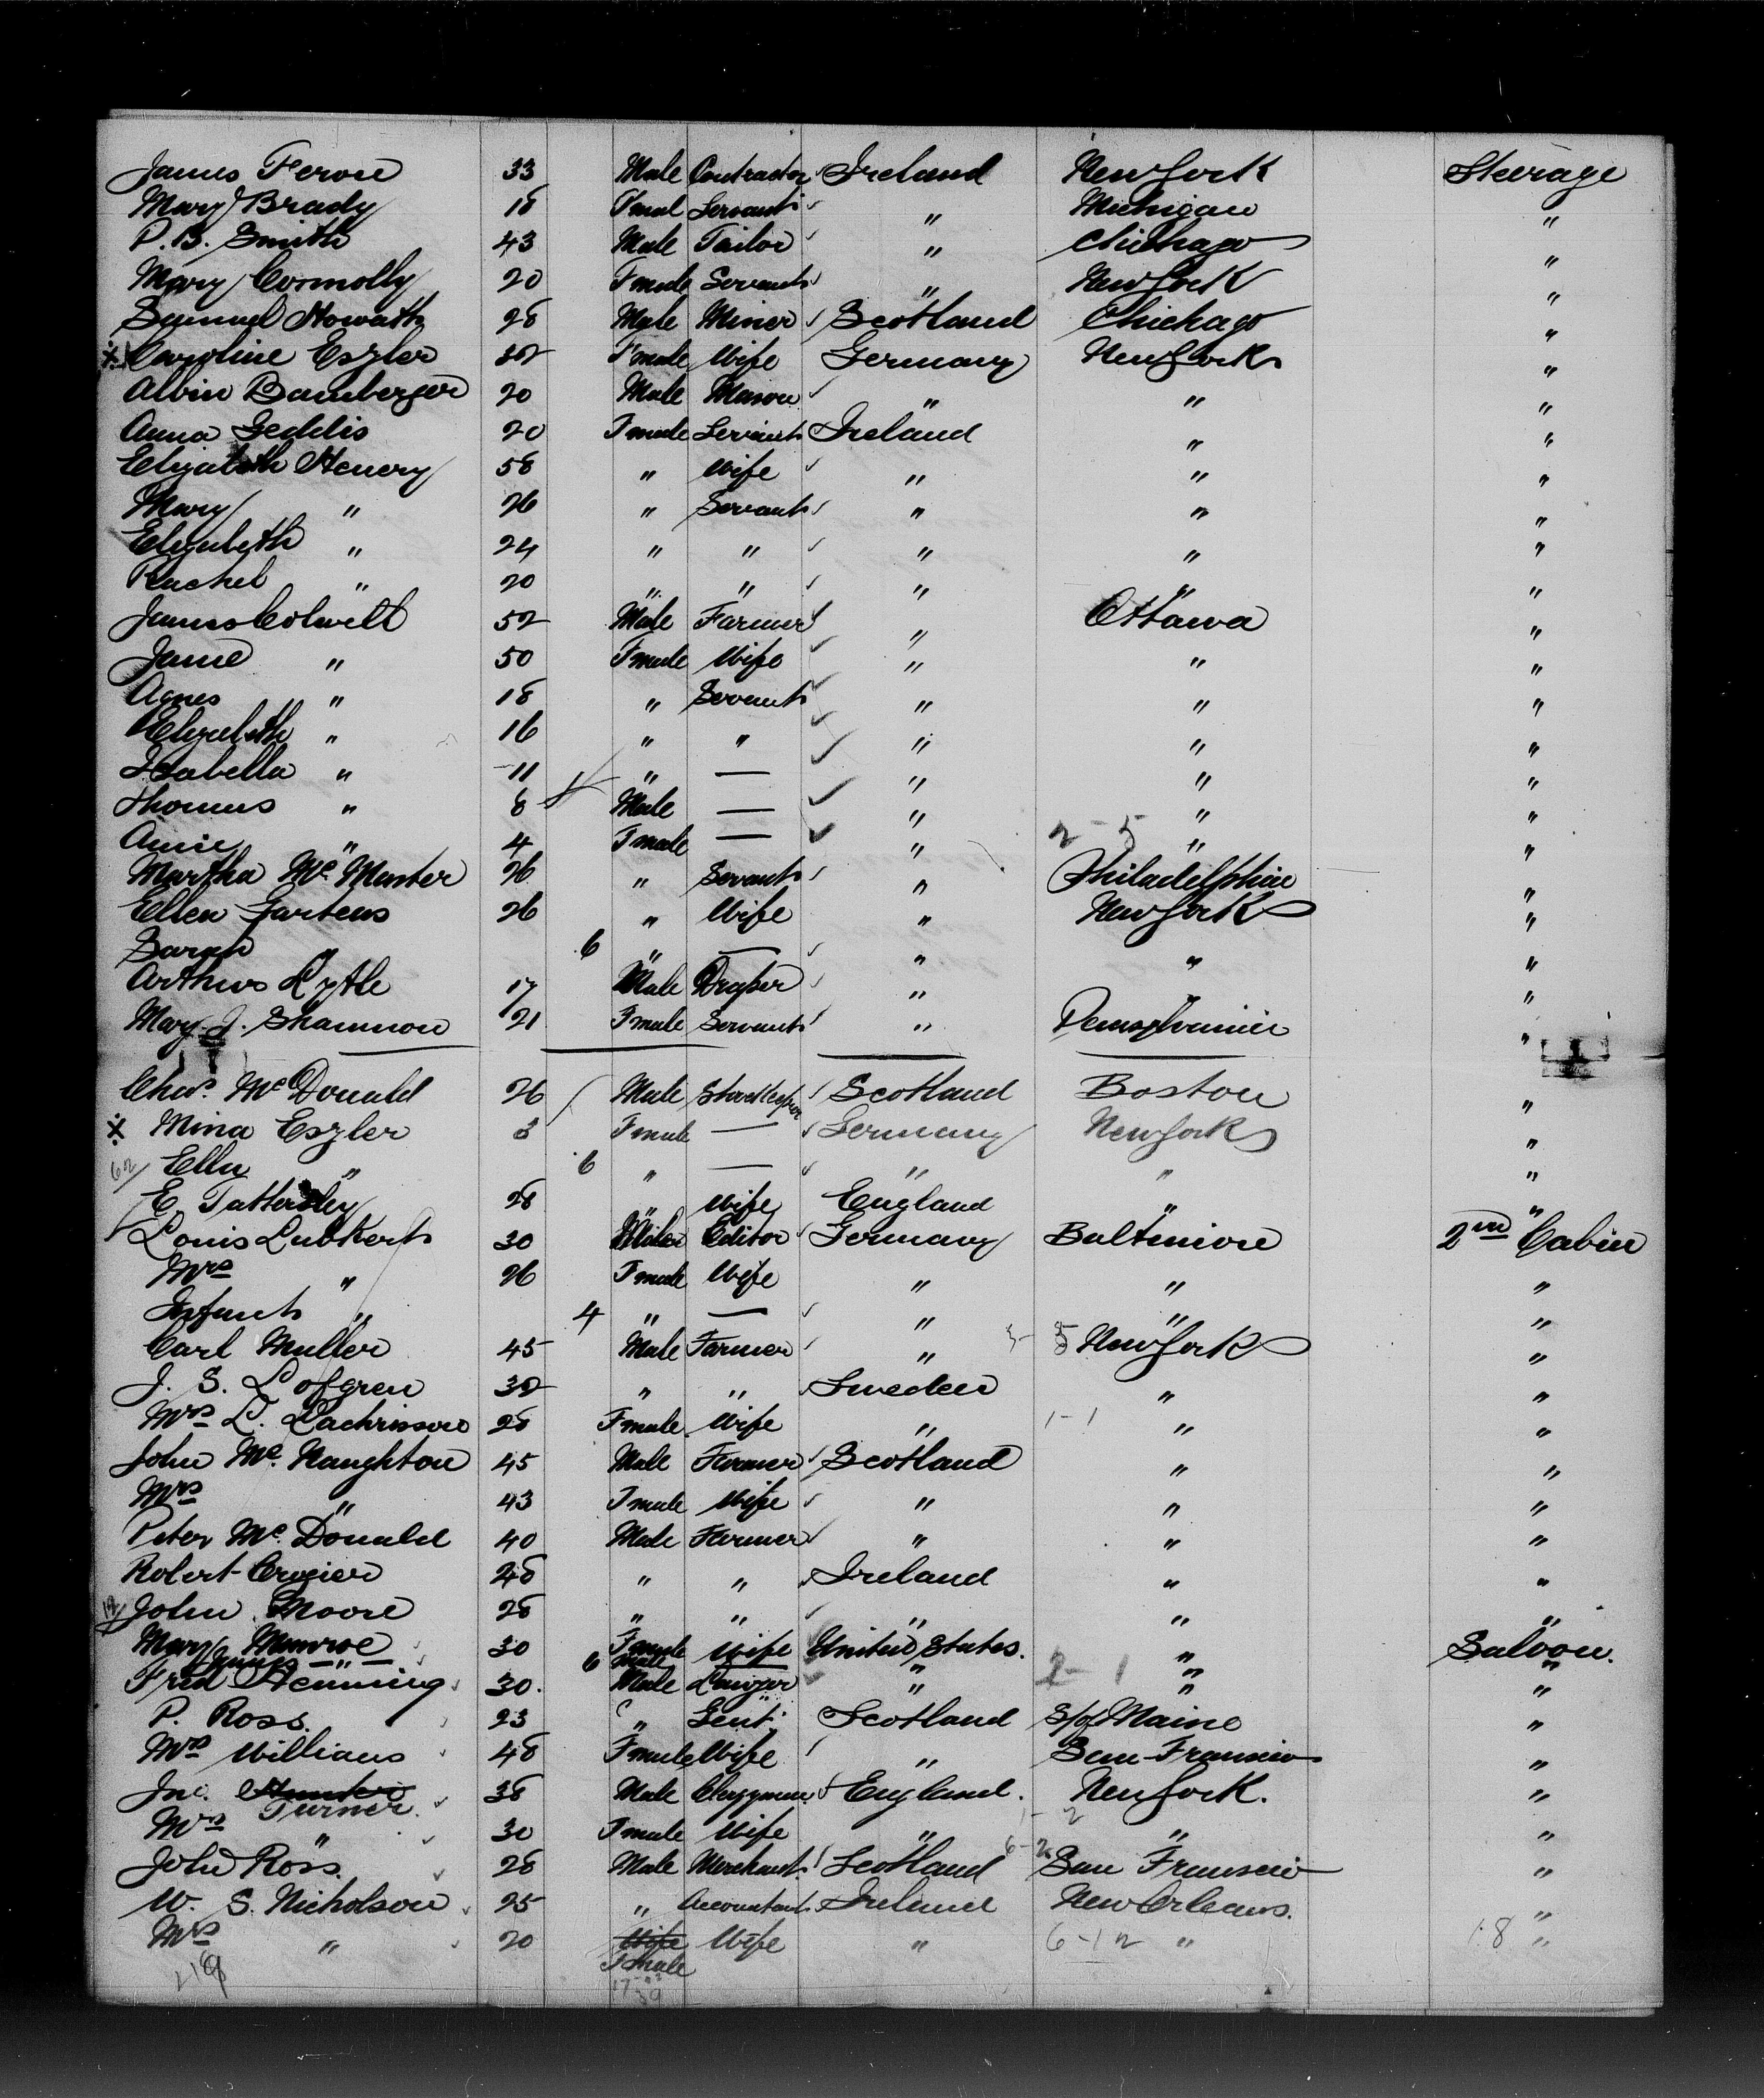 James Feron 33 Male Contractor Ireland New York Steerage
Mary Brady 18 Fmal Servant " Michigan "
P. B. Smith 43 Male Tailor " Chichago "
Mary Connolly 20 Fmale Servant " New York "
Samuel Howath 28 Male Miner Scotland Chichago "
Caroline Eszler 32 Fmale Wife Germany New York "
Albin Bamberger 20 Male Mason " " "
Anna Geddis 20 Fmale Servant Ireland " "
Elizabeth Henery 58 " Wife " " "
Mary " 26 " Servant " " "
Elizabeth " 24 " " " " "
Rachel " 20 " " " " "
James Colwell 52 Male Farmer " Ottawa "
Jane " 50 Fmale Wife " " "
Agnes " 18 " Servant " " "
Elizabeth " 16 " " " " "
Isabella " 11 " — " " "
Thomas " 8 Male — " " "
Annie " 4 Fmale — " 2-5 " "
Martha Mc Master 26 " Servant " Philadelphia "
Ellen Gartens 26 " Wife " New York "
Sarah " 6 " — " " "
Arthur Lytle 17 Male Draper " " "
Mary J. Shannon 21 Fmale Servant " Pensylvania "
Chas. Mc Donald 26 Male Storekeeper Scotland Boston "
Mina Eszler 3 Fmale — Germany New York "
Ella " 6 " — " " "
E. Tattersley 28 " Wife England " "
Louis Lubkert 30 Male Editor Germany Baltimore 2nd Cabin
Mrs " 26 Fmale Wife " " "
Infant " 4 " — " " "
Carl Muller 45 Male Farmer " New York "
J. S. Lofgren 32 " " Sweden " "
Mrs L. Zachrisson 28 Fmale Wife " 1-1 " "
John Mc Naughton 45 Male Farmer Scotland " "
Mrs " 43 Fmale Wife " " "
Peter Mc Donald 40 Male Farmer " " "
Robert Crozier 28 " " Ireland " "
John Moore 28 " " " " "
Mary Munroe 30 Fmale Wife United States. " Saloon.
James " 6 Male — " 2-1 " "
Fred Henning 30. Male Lawyer " " "
P. Ross. 23 " Gent. Scotland S/of Maine "
Mrs Williams 48 Fmale Wife " San Francisco "
Jno. Hunter Turner. 38 Male Clergyman England. New York. "
Mrs " 30 Fmale Wife " " "
John Ross. 28 Male Merchant Scotland San Francisco "
W. S. Nicholson 25 " Accountant Ireland New Orleans. "
Mrs " 20 Wife Fmale Wife " 6-12 " 18 "